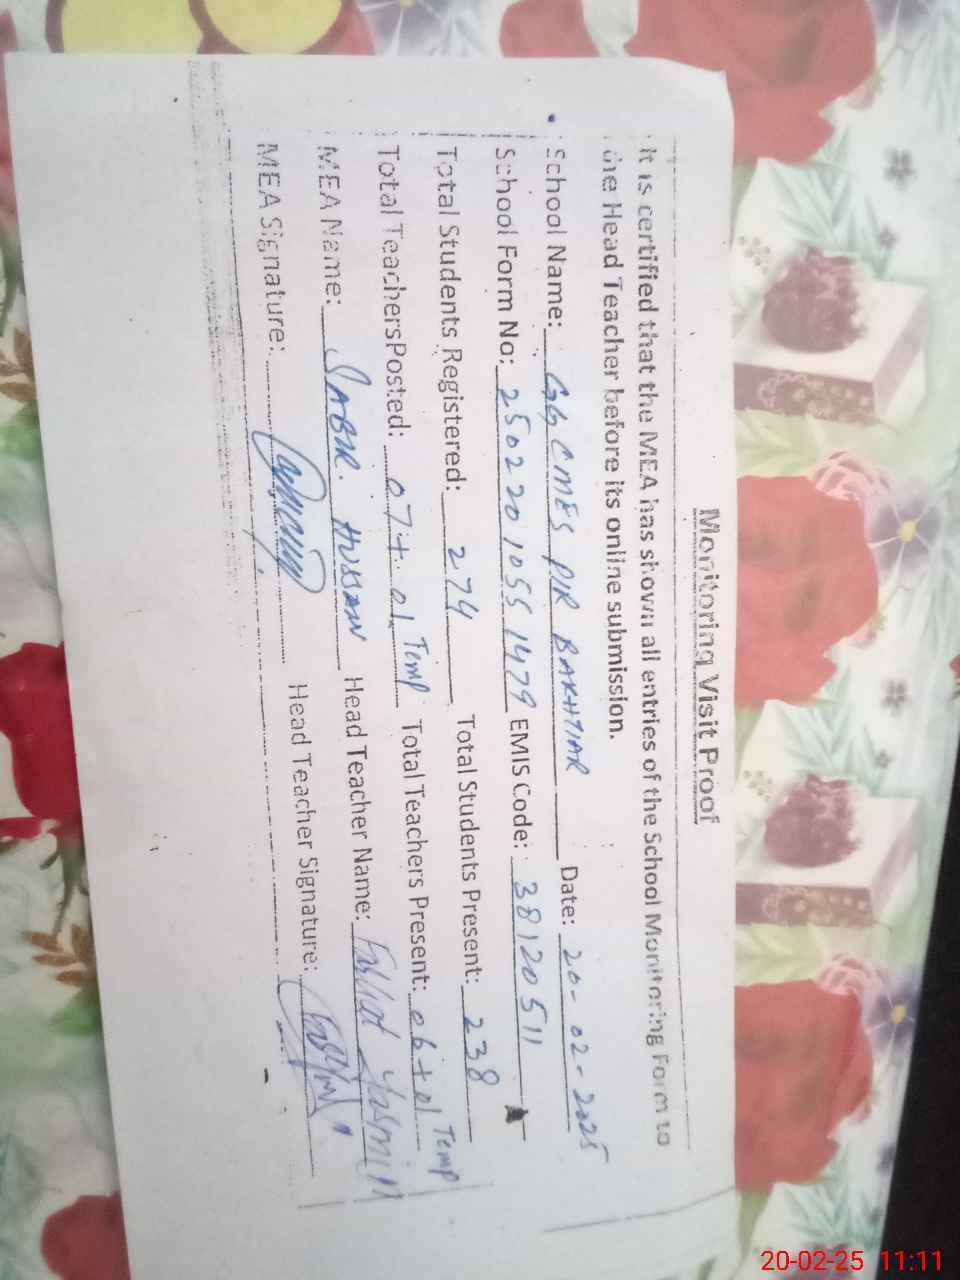 Monitoring Visit Proof
It is certified that the MEA has shown all entries of the School Monitoring Form to
the Head Teacher before its online submission.
School Name: GG CMES PIR BAKHTIAR Date: 20-02-2025
School Form No: 25022010551479 EMIS Code: 38120511
Total Students Registered: 274 Total Students Present: 238
Total TeachersPosted: 07+01 Temp Total Teachers Present: 06+01 Temp
MEA Name: SABIR HUSSAIN Head Teacher Name: Yasmin
MEA Signature: Head Teacher Signature:
20-02-25 11:11